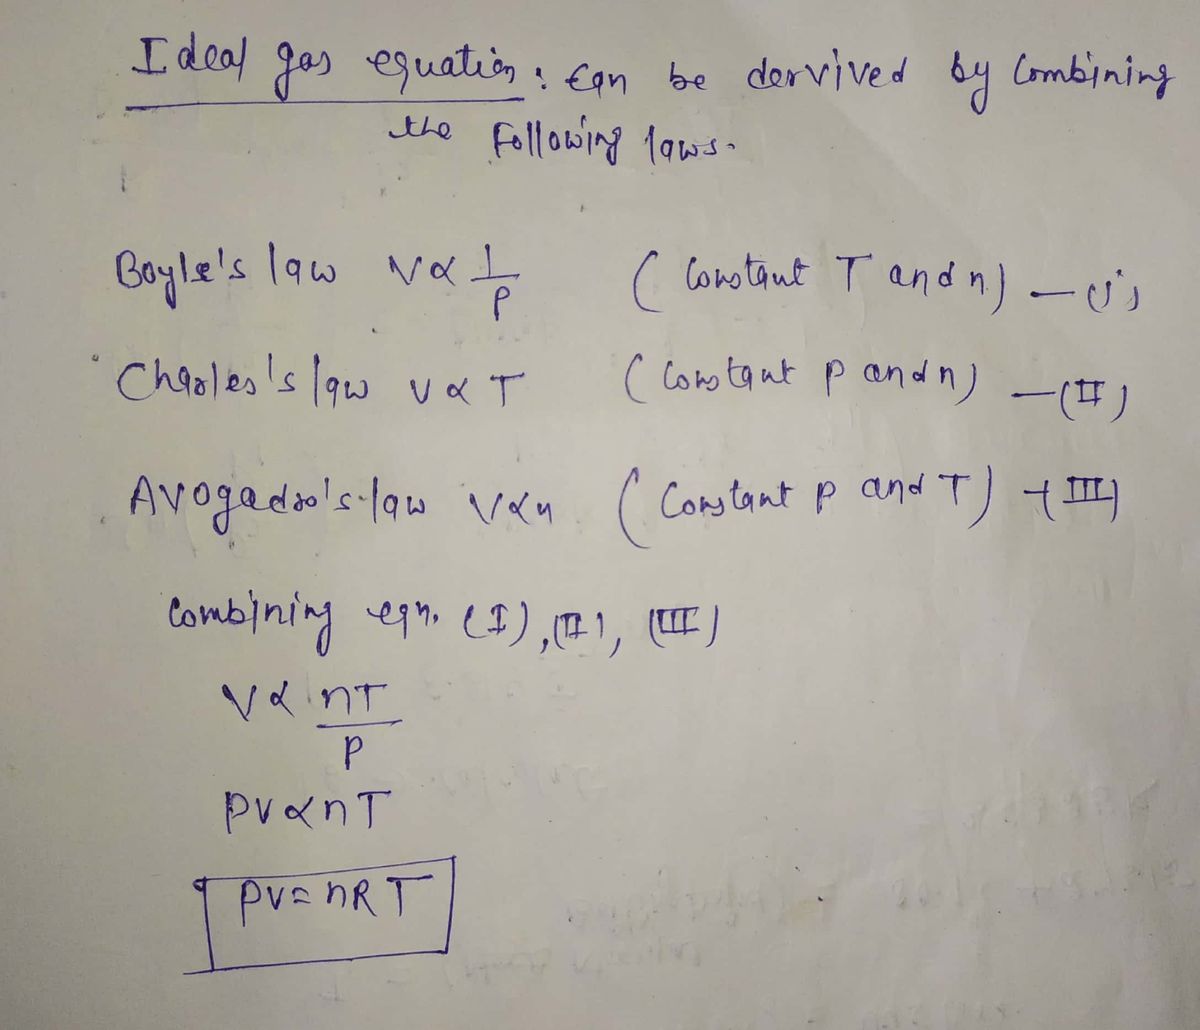 Ideal gas equation : Can be dervived by Combining
the Following laws.
Boyle's law V ∝ 1/P ( Constant T and n) — (i)
Charles's law V ∝ T ( Constant P and n) — (II)
Avogadro's law V ∝ n ( Constant P and T) — (III)
Combining eqn. (I), (II), (III)
V ∝ nT/P
PV ∝ nT
PV = nRT